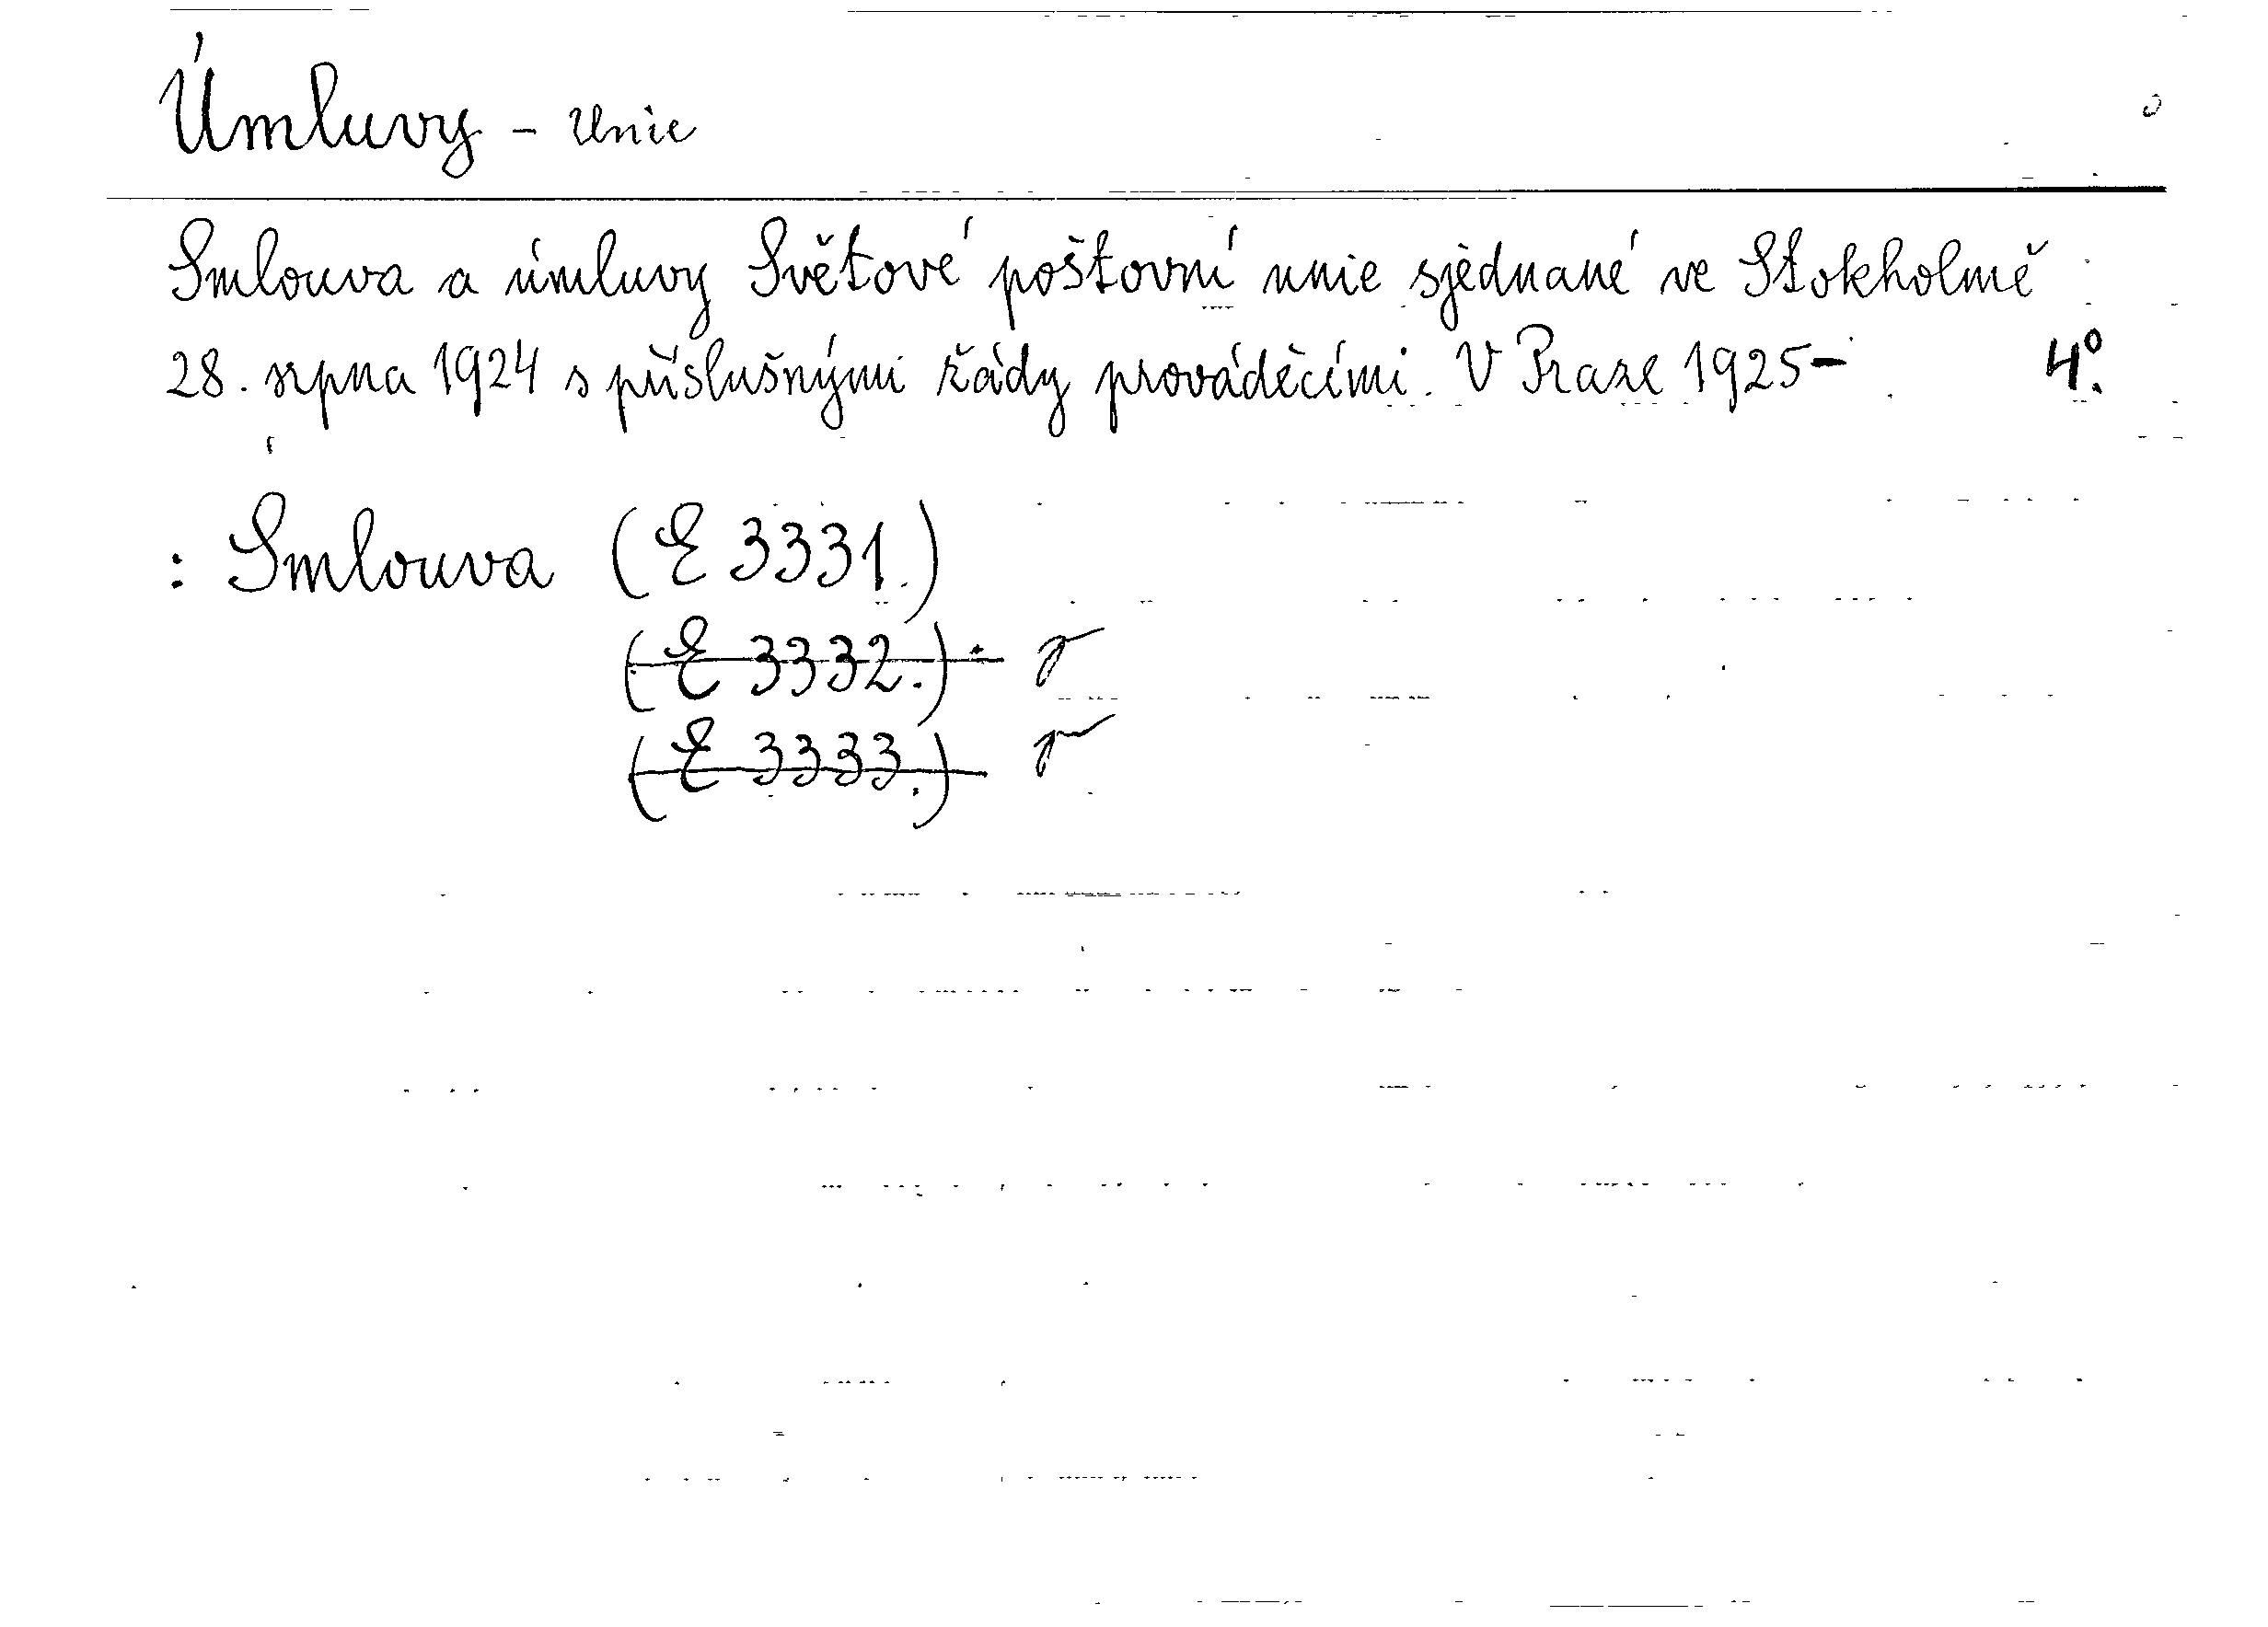 Úmluvy - Unie
Smlouva a úmluvy Světové poštovní unie sjednané ve Stokholmě
28. srpna 1924 s příslušnými řády prováděcími. V Praze 1925- 4°.
: Smlouva (E 3331.)
(E 3332.)
(E 3333.)